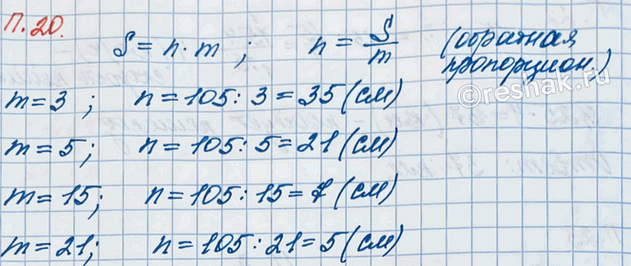 П.20.
S = n · m ; n = S/m (обратная
пропорцион.)
©reshak.ru
m = 3 ; n = 105 : 3 = 35 (см)
m = 5; n = 105 : 5 = 21 (см)
m = 15; n = 105 : 15 = 7 (см)
m = 21; n = 105 : 21 = 5 (см)